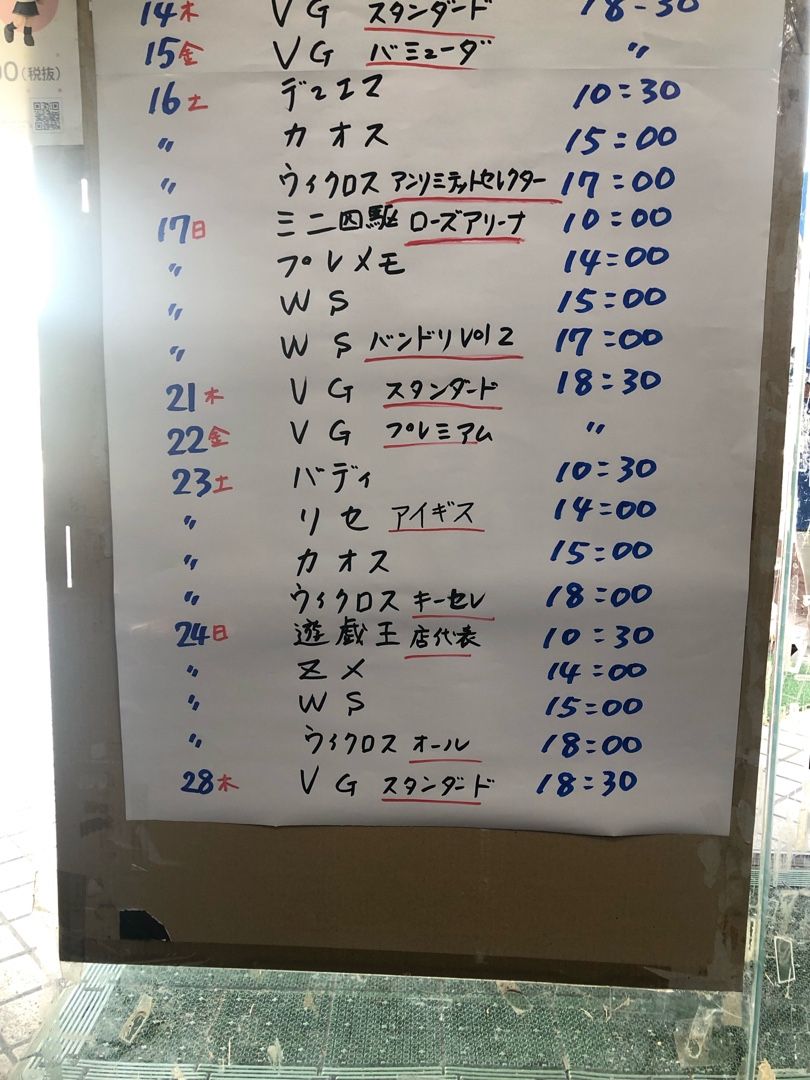 00(税抜)
14木 VG スタンダード 18:30
15金 VG バミューダ 〃
16土 デュエマ 10:30
〃 カオス 15:00
〃 ウィクロス アンリミテッドセレクター 17:00
17日 ミニ四駆 ローズアリーナ 10:00
〃 プレメモ 14:00
〃 WS 15:00
〃 WS バンドリVol2 17:00
21木 VG スタンダード 18:30
22金 VG プレミアム 〃
23土 バディ 10:30
〃 リセ アイギス 14:00
〃 カオス 15:00
〃 ウィクロス キーセレ 18:00
24日 遊戯王 店代表 10:30
〃 Zメ 14:00
〃 WS 15:00
〃 ウィクロス オール 18:00
28木 VG スタンダード 18:30